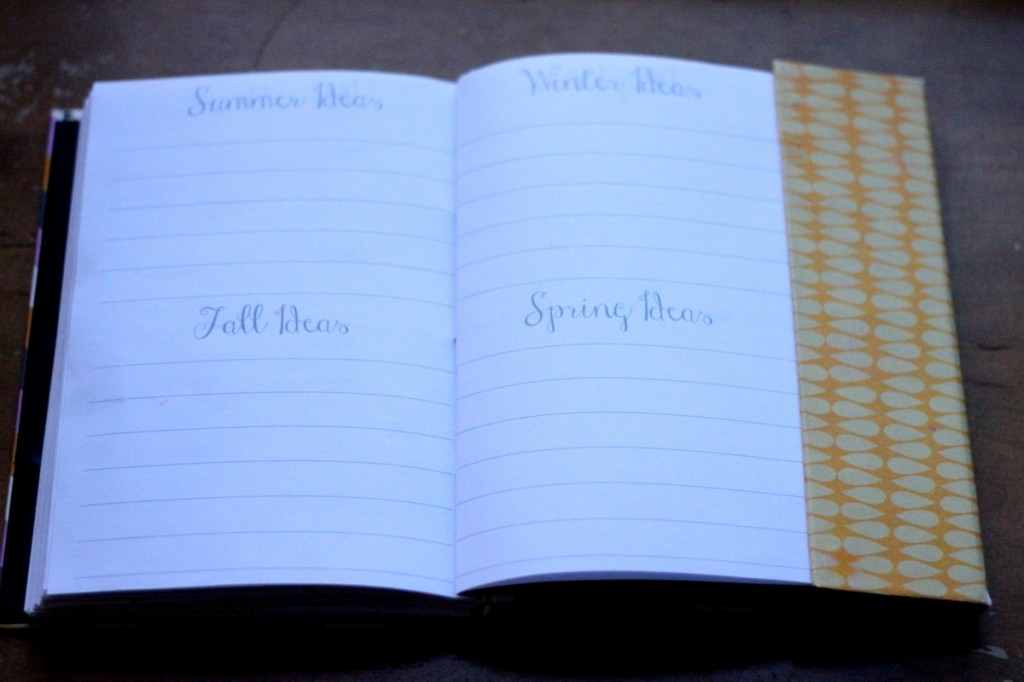 Summer Ideas
Fall Ideas
Winter Ideas
Spring Ideas